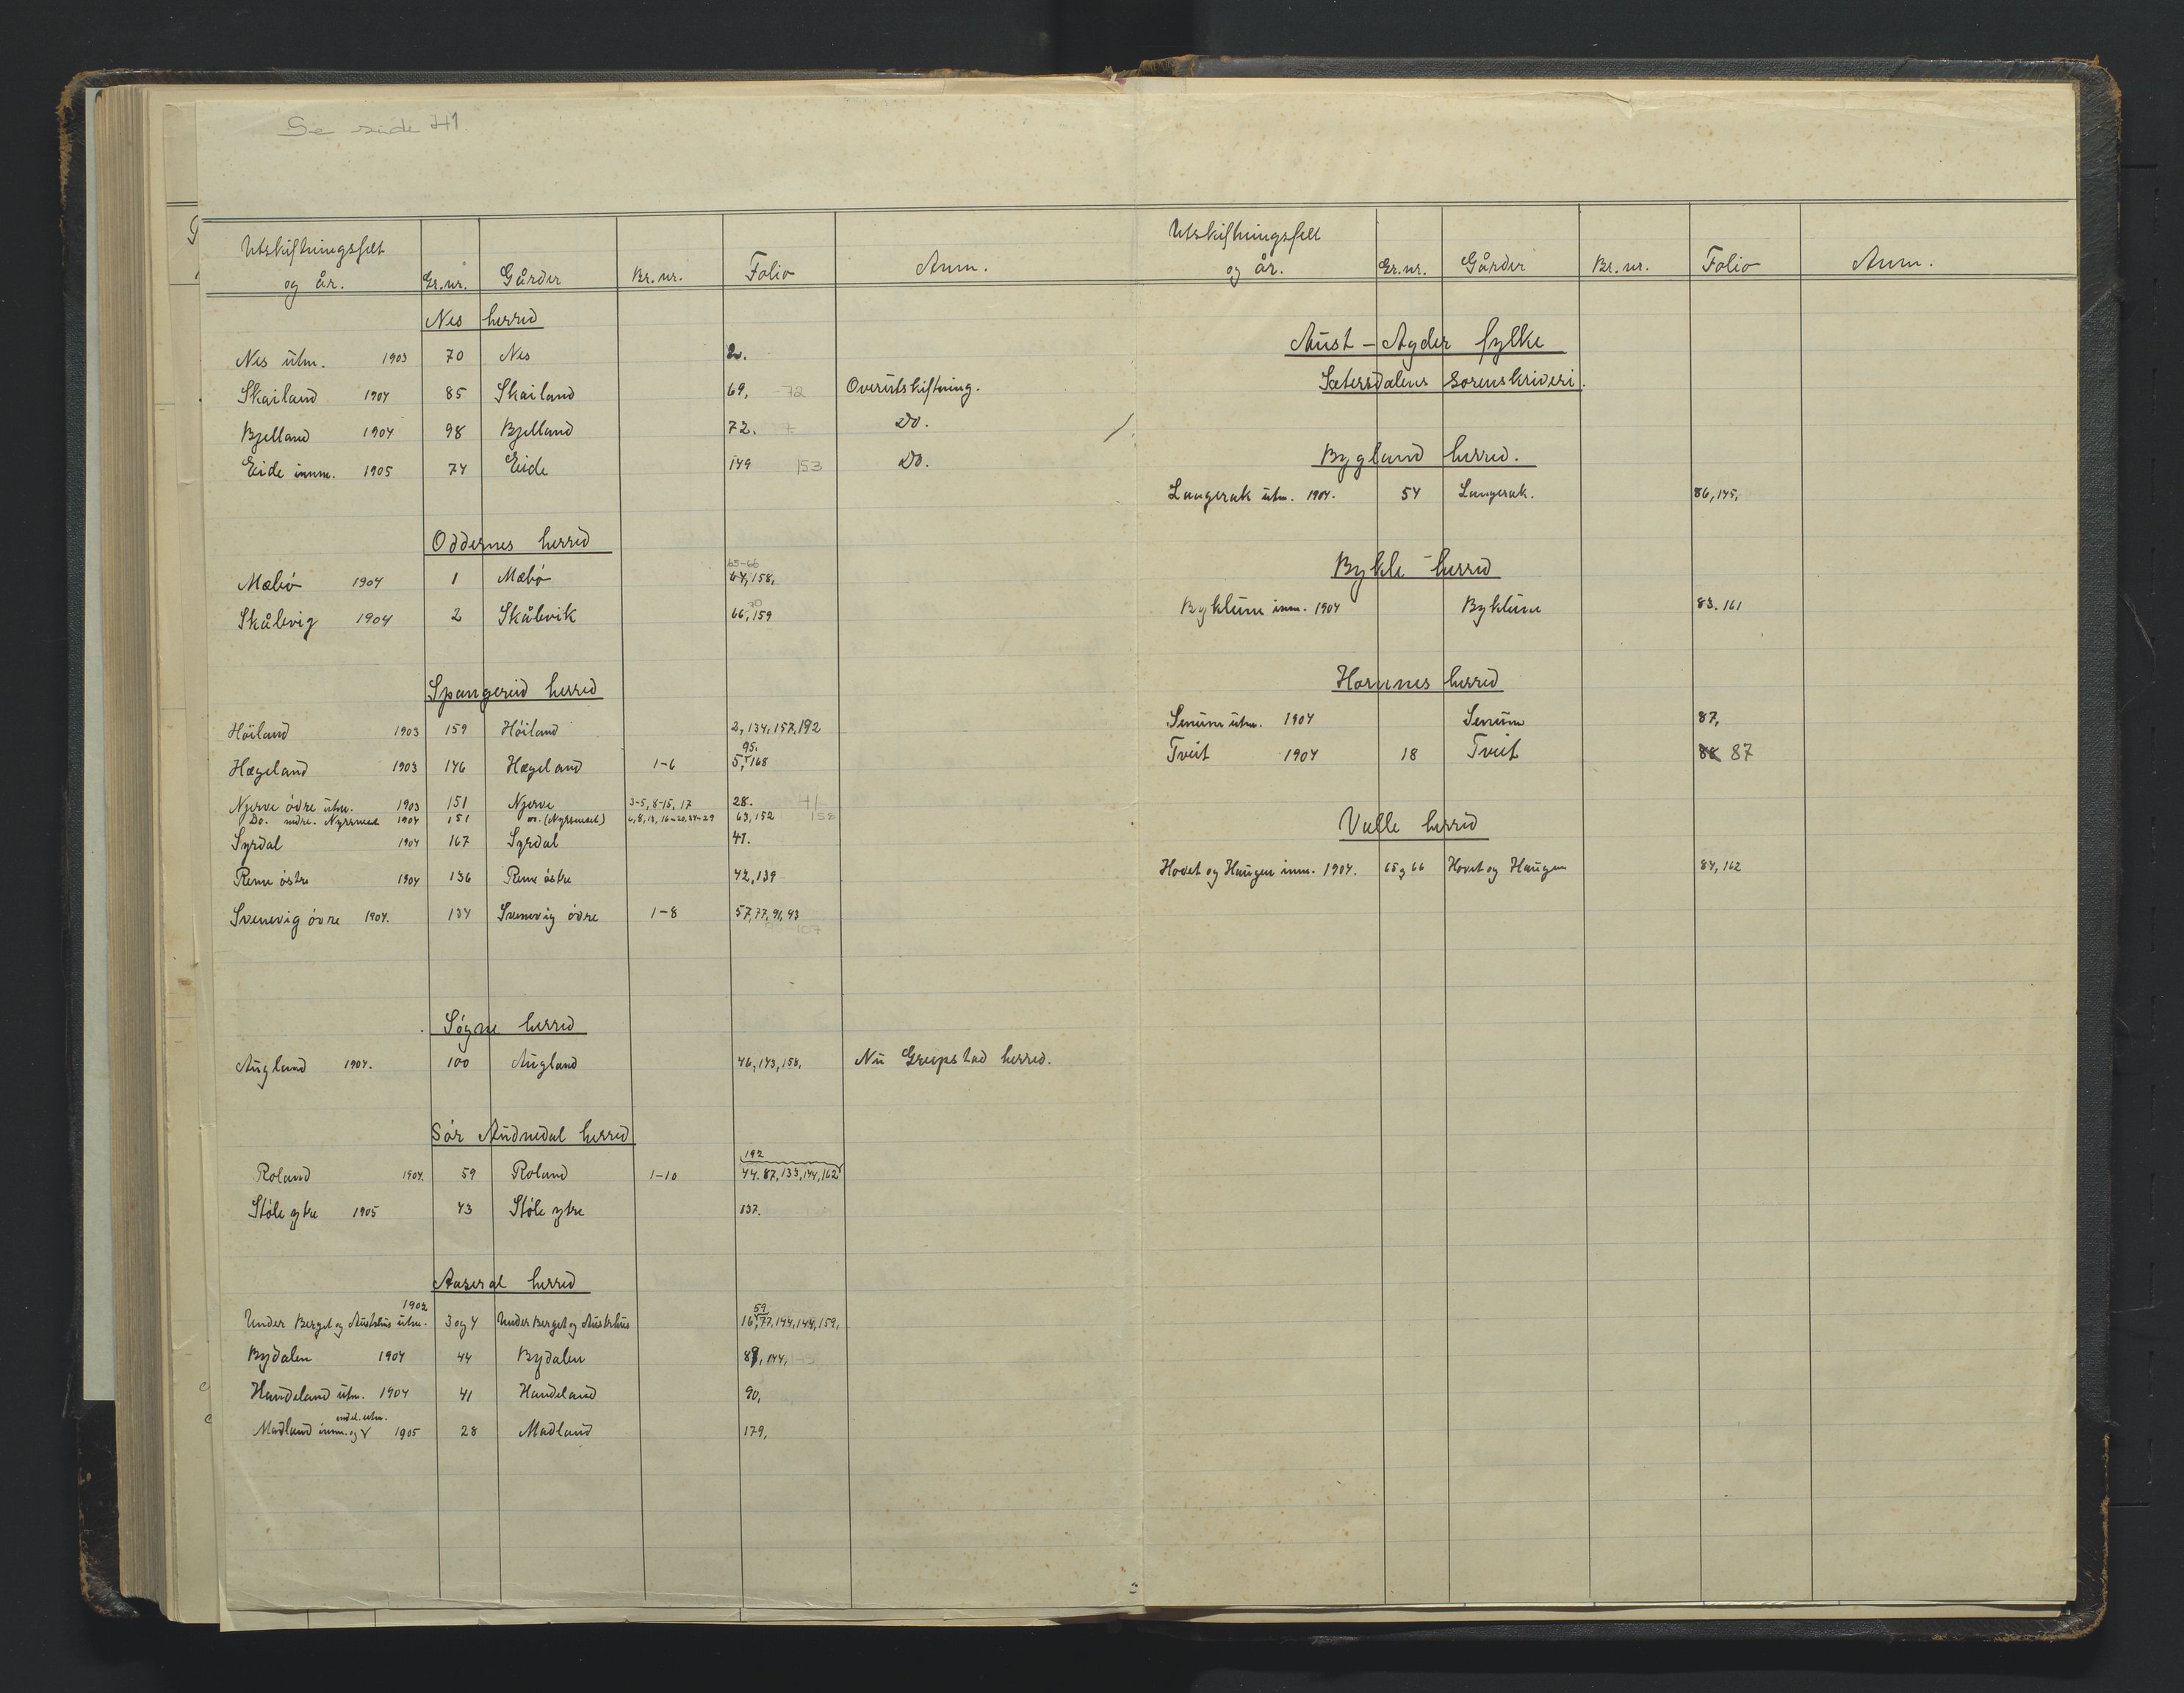 Se side 41
Utskiftningsfelt
og år. Gr.nr. Gårder Br.nr. Folio Anm.
Nes herred
Nes utm. 1903 70 Nes 2.
Skailand 1904 85 Skailand 69, -72 Overutskiftning.
Bjelland 1904 98 Bjelland 72. Do.
Eide innm. 1905 74 Eide 149 153 Do.
Oddernes herred
65-66
Mæbö 1904 1 Mæbö 64, 158,
70
Skålevig 1904 2 Skålevik 66, 159
Spangereid herred
Höiland 1903 159 Höiland 2, 134, 157, 192
95.
Hægeland 1903 146 Hægeland 1-6 5, 168
Njerve övre utm. 1903 151 Njerve 3-5, 8-15, 17 28. 41
Do. indre. Nyrsmark 1904 151 Do. (Nyrsmark) 6, 8, 13, 16-20, 24-29 63, 152 158
Syrdal 1904 167 Syrdal 41.
Reme östre 1904 136 Reme östre 42, 139
Svenevig övre 1904. 134 Svenevig övre 1-8 57, 77, 91, 93
-107
Sögne herred
Augland 1904. 100 Augland 46, 143, 158, Nu Greipstad herred.
Sör Audnedal herred
192
Roland 1904. 59 Roland 1-10 44. 87, 133, 144, 162
Stöle ytre 1905 43 Stöle ytre 137.
Aaseral herred
1902 59
Under Berget og Austrhus utm. 3 og 4 Under Berget og Austrhus 16, 77, 144, 144, 159,
Bydalen 1904 44 Bydalen 89, 144,
Handeland utm. 1904 41 Handeland 90,
endel. utm.
Madland innm. og 1905 28 Madland 179,
Utskiftningsfelt
og år. Gr.nr. Gårder Br.nr. Folio Anm.
Aust-Agder fylke
Sætersdalens sorenskriveri.
Bygland herred.
Langerak utm. 1904. 54 Langerak. 86, 145,
Bykle herred
Byklum innm. 1904 Byklum 83. 161
Hornnes herred
Senum utm. 1904 Senum 87,
Tveit 1904 18 Tveit 88 87
Valle herred
Hovet og Haugen innm. 1904. 65 og 66 Hovet og Haugen 84, 162